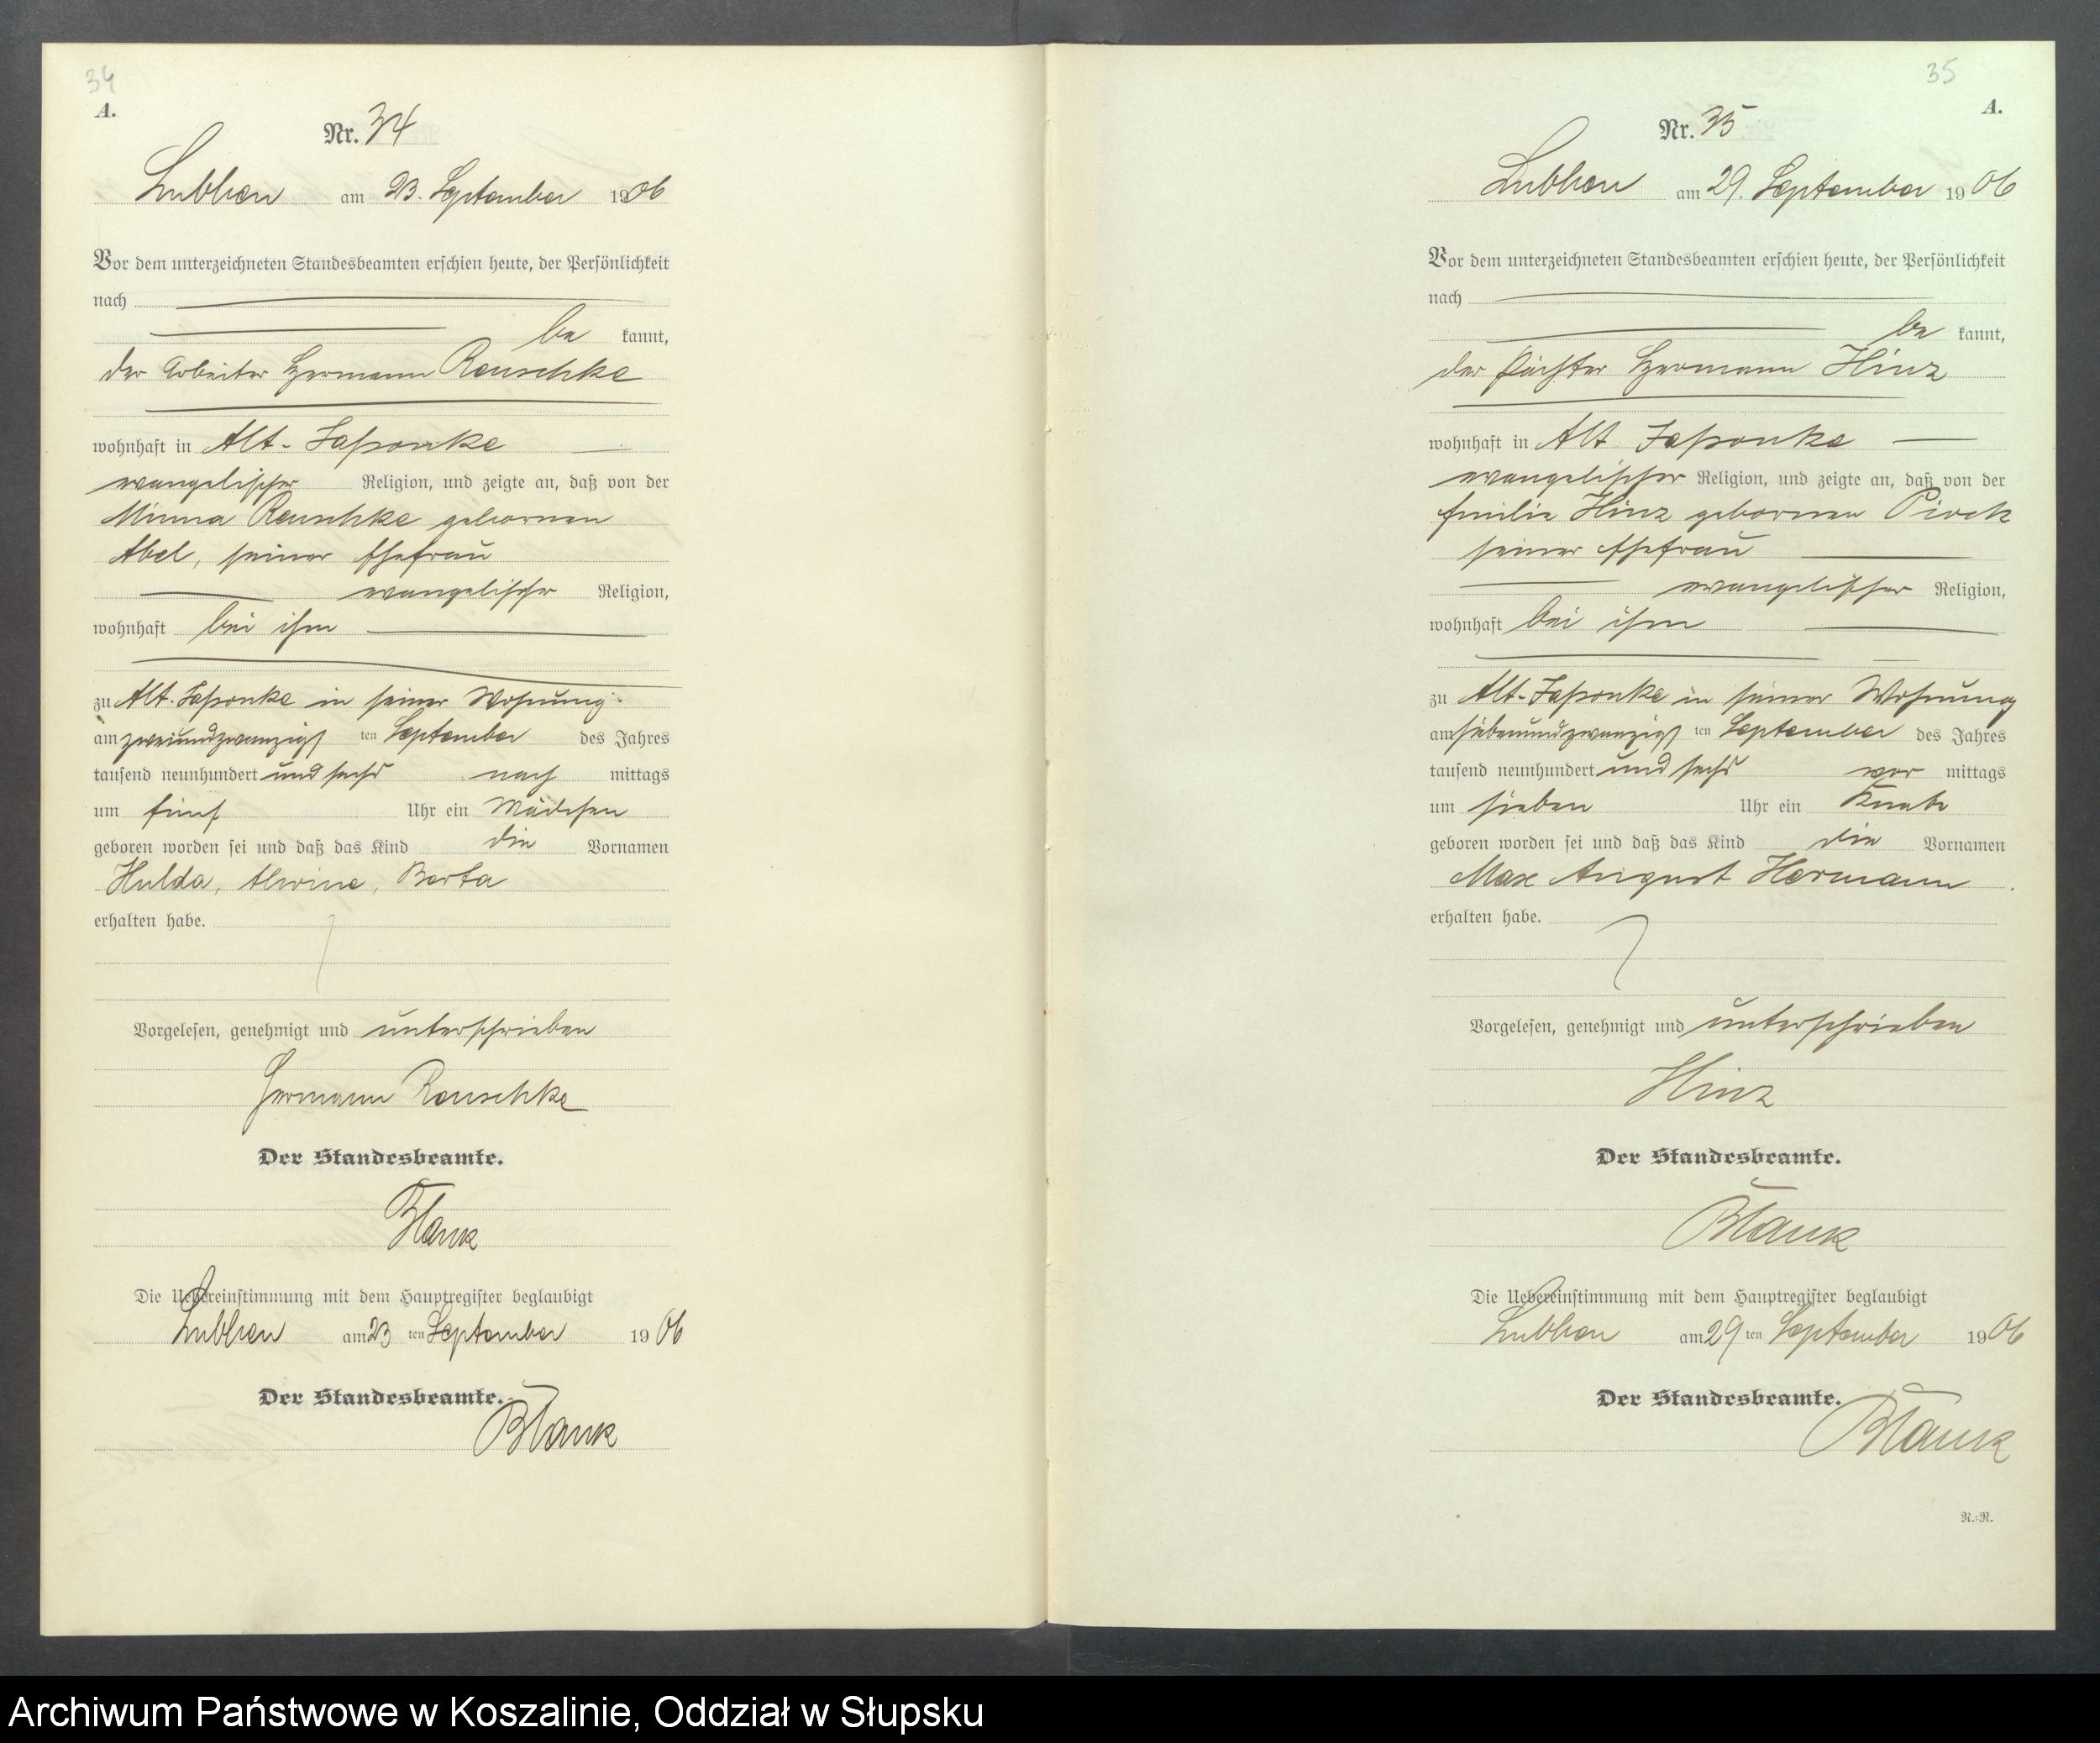 34
A.
Nr. 34
Lubben am 23. September 1906
Vor dem unterzeichneten Standesbeamten erschien heute, der Persönlichkeit
nach
be kannt,
der Arbeiter Hermann Reuschke
wohnhaft in Alt-Jaßonke
evangelischer Religion, und zeigte an, daß von der
Minna Reuschke gebornen
Abel, seiner Ehefrau
evangelischer Religion,
wohnhaft bei ihm
zu Alt-Jaßonke in seiner Wohnung
am zweiundzwanzigsten September des Jahres
tausend neunhundert und sechs nach mittags
um fünf Uhr ein Mädchen
geboren worden sei und daß das Kind die Vornamen
Hulda, Alwine, Berta
erhalten habe.
Vorgelesen, genehmigt und unterschrieben
Hermann Reuschke
Der Standesbeamte.
Blank
Die Uebereinstimmung mit dem Hauptregister beglaubigt
Lubben am 23 ten September 1906
Der Standesbeamte.
Blank
35
A.
Nr. 35
Lubben am 29. September 1906
Vor dem unterzeichneten Standesbeamten erschien heute, der Persönlichkeit
nach
be kannt,
der Pächter Hermann Hinz
wohnhaft in Alt Jaßonke
evangelischer Religion, und zeigte an, daß von der
Emilie Hinz gebornen
seiner Ehefrau
evangelischer Religion,
wohnhaft bei ihm
zu Alt-Jaßonke in seiner Wohnung
am siebenundzwanzigsten September des Jahres
tausend neunhundert und sechs vor mittags
um sieben Uhr ein Knabe
geboren worden sei und daß das Kind die Vornamen
Max August Hermann
erhalten habe.
Vorgelesen, genehmigt und unterschrieben
Hinz
Der Standesbeamte.
Blank
Die Uebereinstimmung mit dem Hauptregister beglaubigt
Lubben am 29 ten September 1906
Der Standesbeamte.
Blank
N.=N.
Archiwum Państwowe w Koszalinie, Oddział w Słupsku